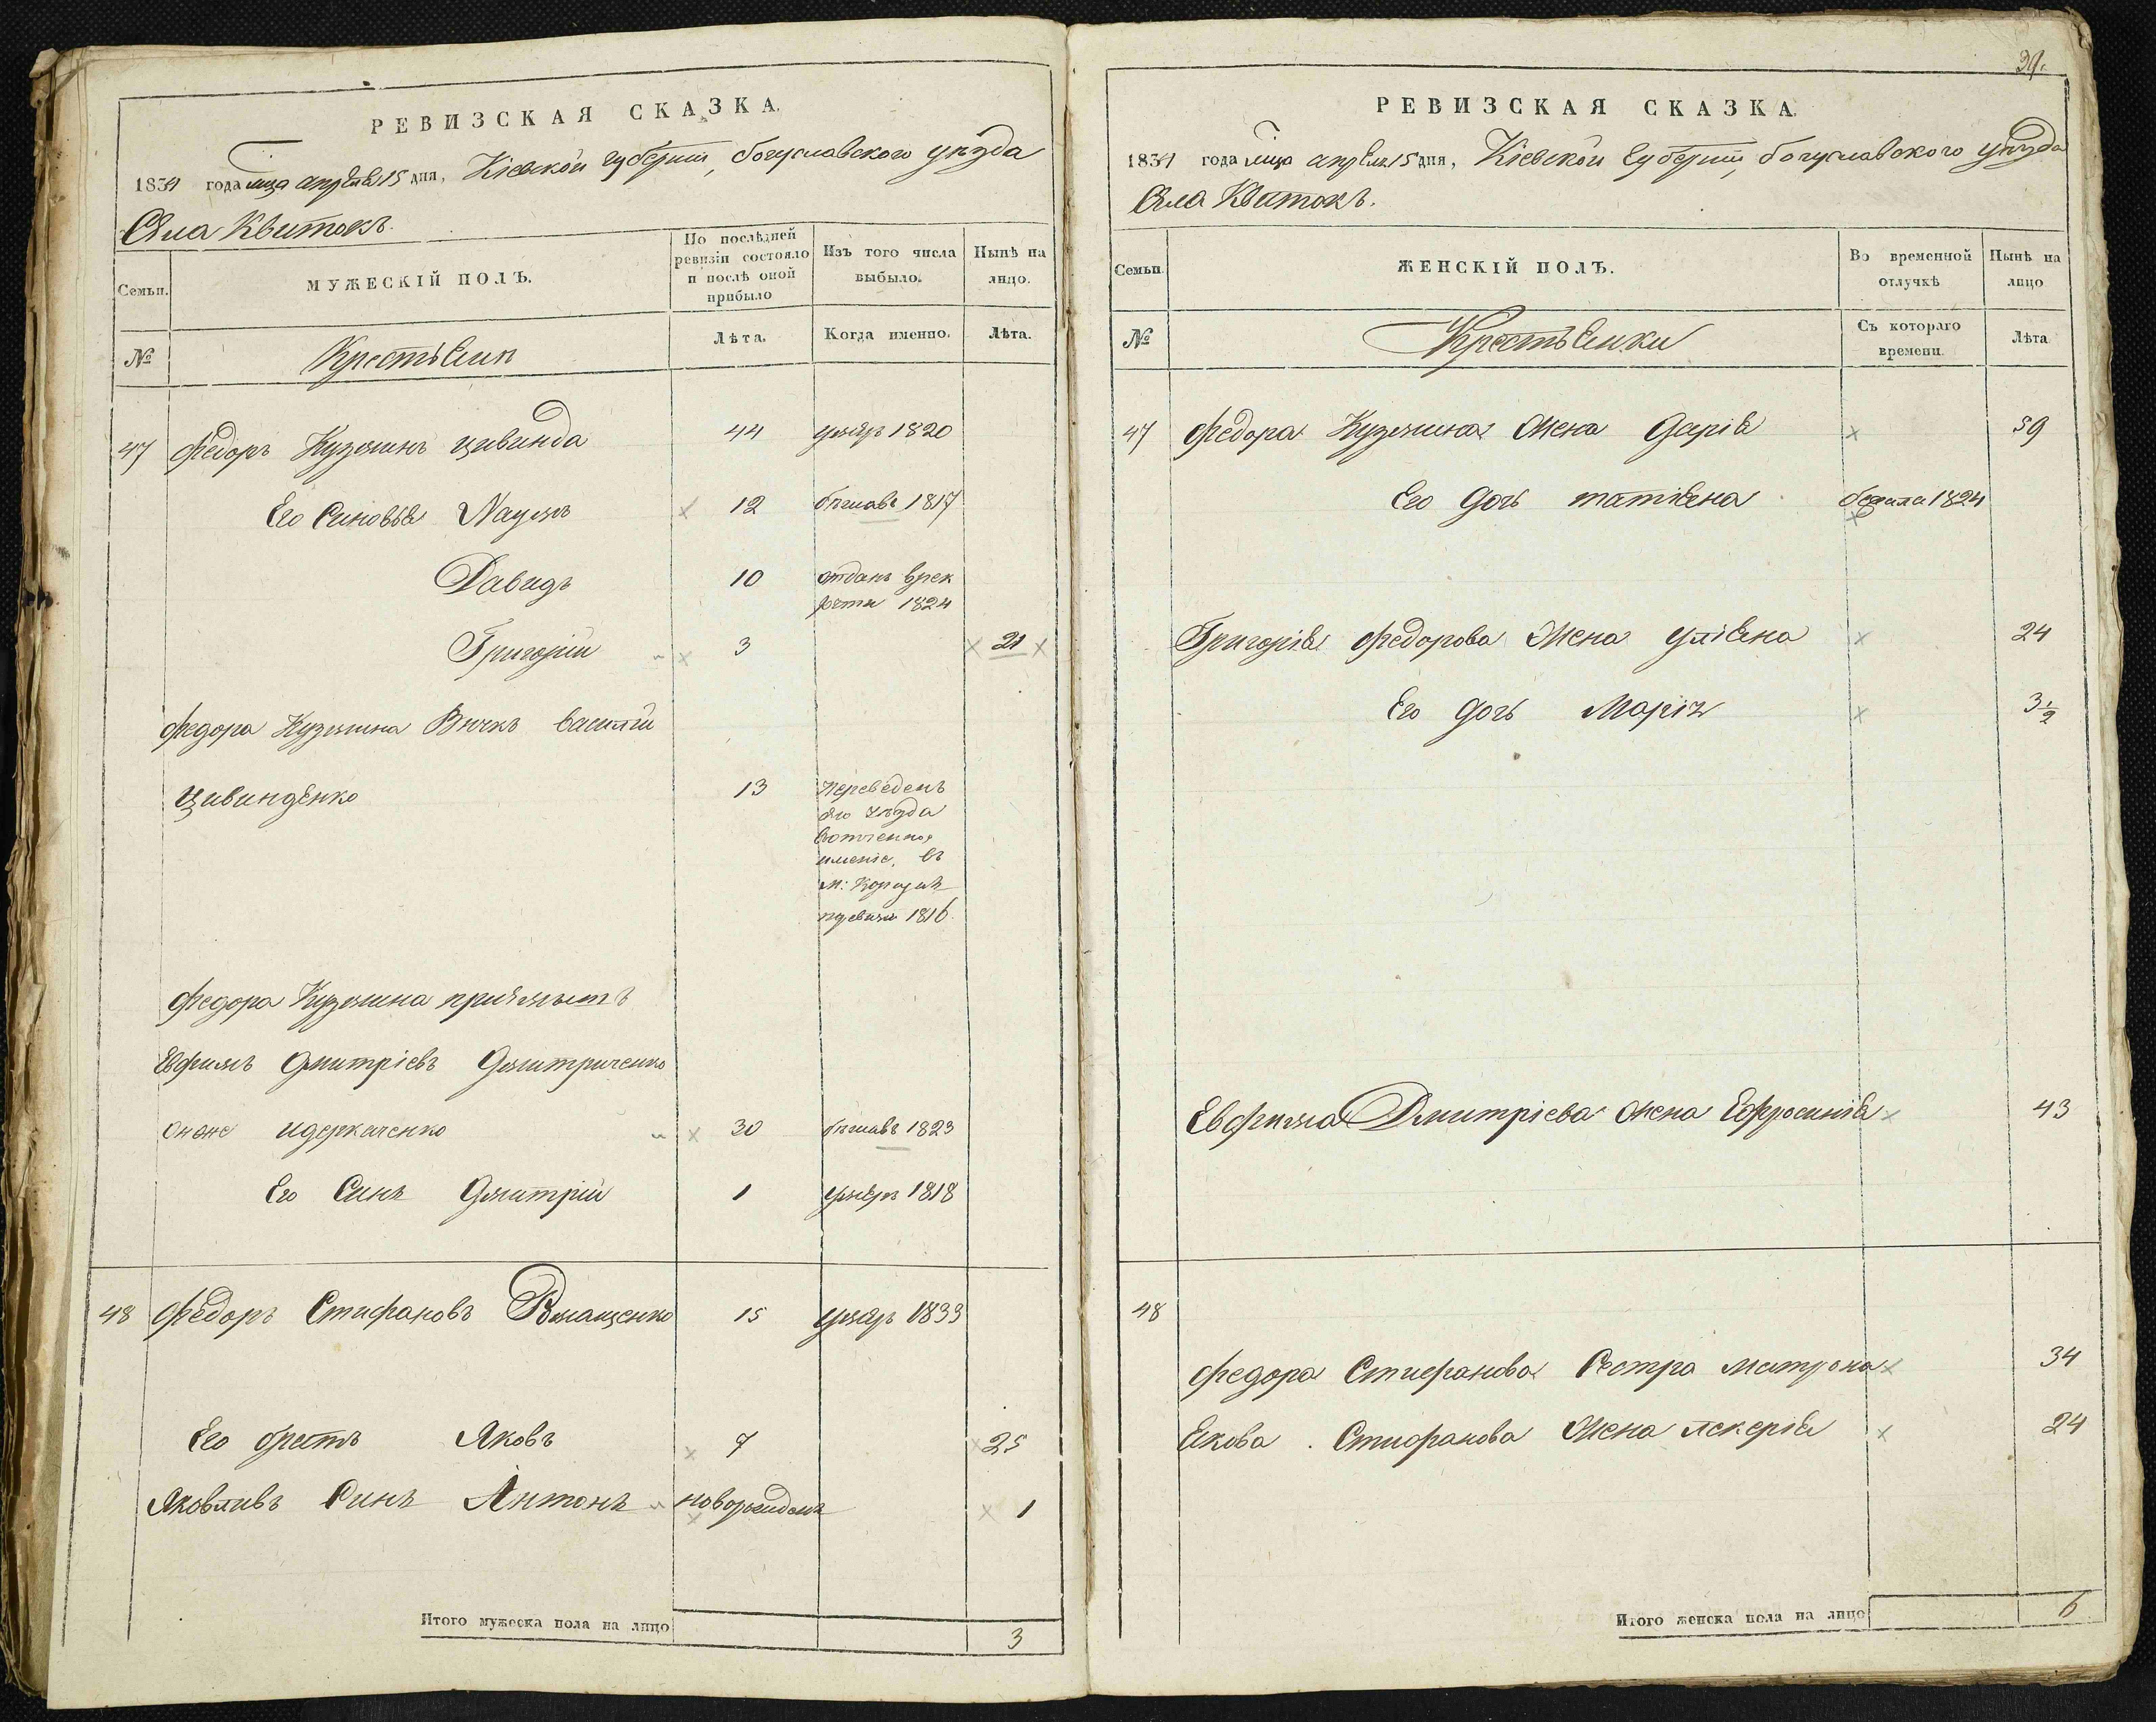 РЕВИЗСКАЯ СКАЗКА.
1834 года мца апреля 15 дня, Кіевской губерніи, богуславского уѣзда
Села Квитокъ.
Семьи.
МУЖЕСКІЙ ПОЛЪ.
По послѣдней ревизіи состояло и послѣ оной прибыло
Изъ того числа выбыло.
Нынѣ на лицо.
№
Крестьяне
Лѣта.
Когда именно.
Лѣта.
47 Федоръ Кузминъ цивинда 44 умеръ 1820
Его Синовья Наумъ 12 бѣглавъ 1817
Давидъ 10 отданъ врек
руты 1824
Григорій 3 21
Федора Кузмина Внукъ Василій
Цивинденко 13 Переведенъ
уѣзда
имение, въ
м:
1816
Федора Кузмина приймытъ
Евфимъ Дмитріевъ Дмитриченко
онже 30 бѣглавъ 1823
Его Синъ Дмитрій 1 умеръ 1818
48 Федоръ Стифановъ 15 умеръ 1833
Его братъ Яковъ 7 25
Яковливъ Синъ Антонъ новорожденъ 1
Итого мужеска пола на лицо 3
39.
РЕВИЗСКАЯ СКАЗКА.
1834 года мца апреля 15 дня, Кіевской губерніи, богуславского уѣзда
Села Квитокъ.
Семьи.
ЖЕНСКІЙ ПОЛЪ.
Во временной отлучкѣ
Нынѣ на лицо
№
Крестьянки
Съ котораго времени.
Лѣта
47 Федора Кузмина Жена Дарія 59
Его Дочь татіяна 1824
Григорія Федорова Жена уліяна 24
Его Дочь Марія 3 1/2
Евфима Дмитріева жена Ефросинія 43
48
Федора Стифанова Сестра матрона 34
Якова Стифанова Жена лекерія 24
Итого женска пола на лицо 6